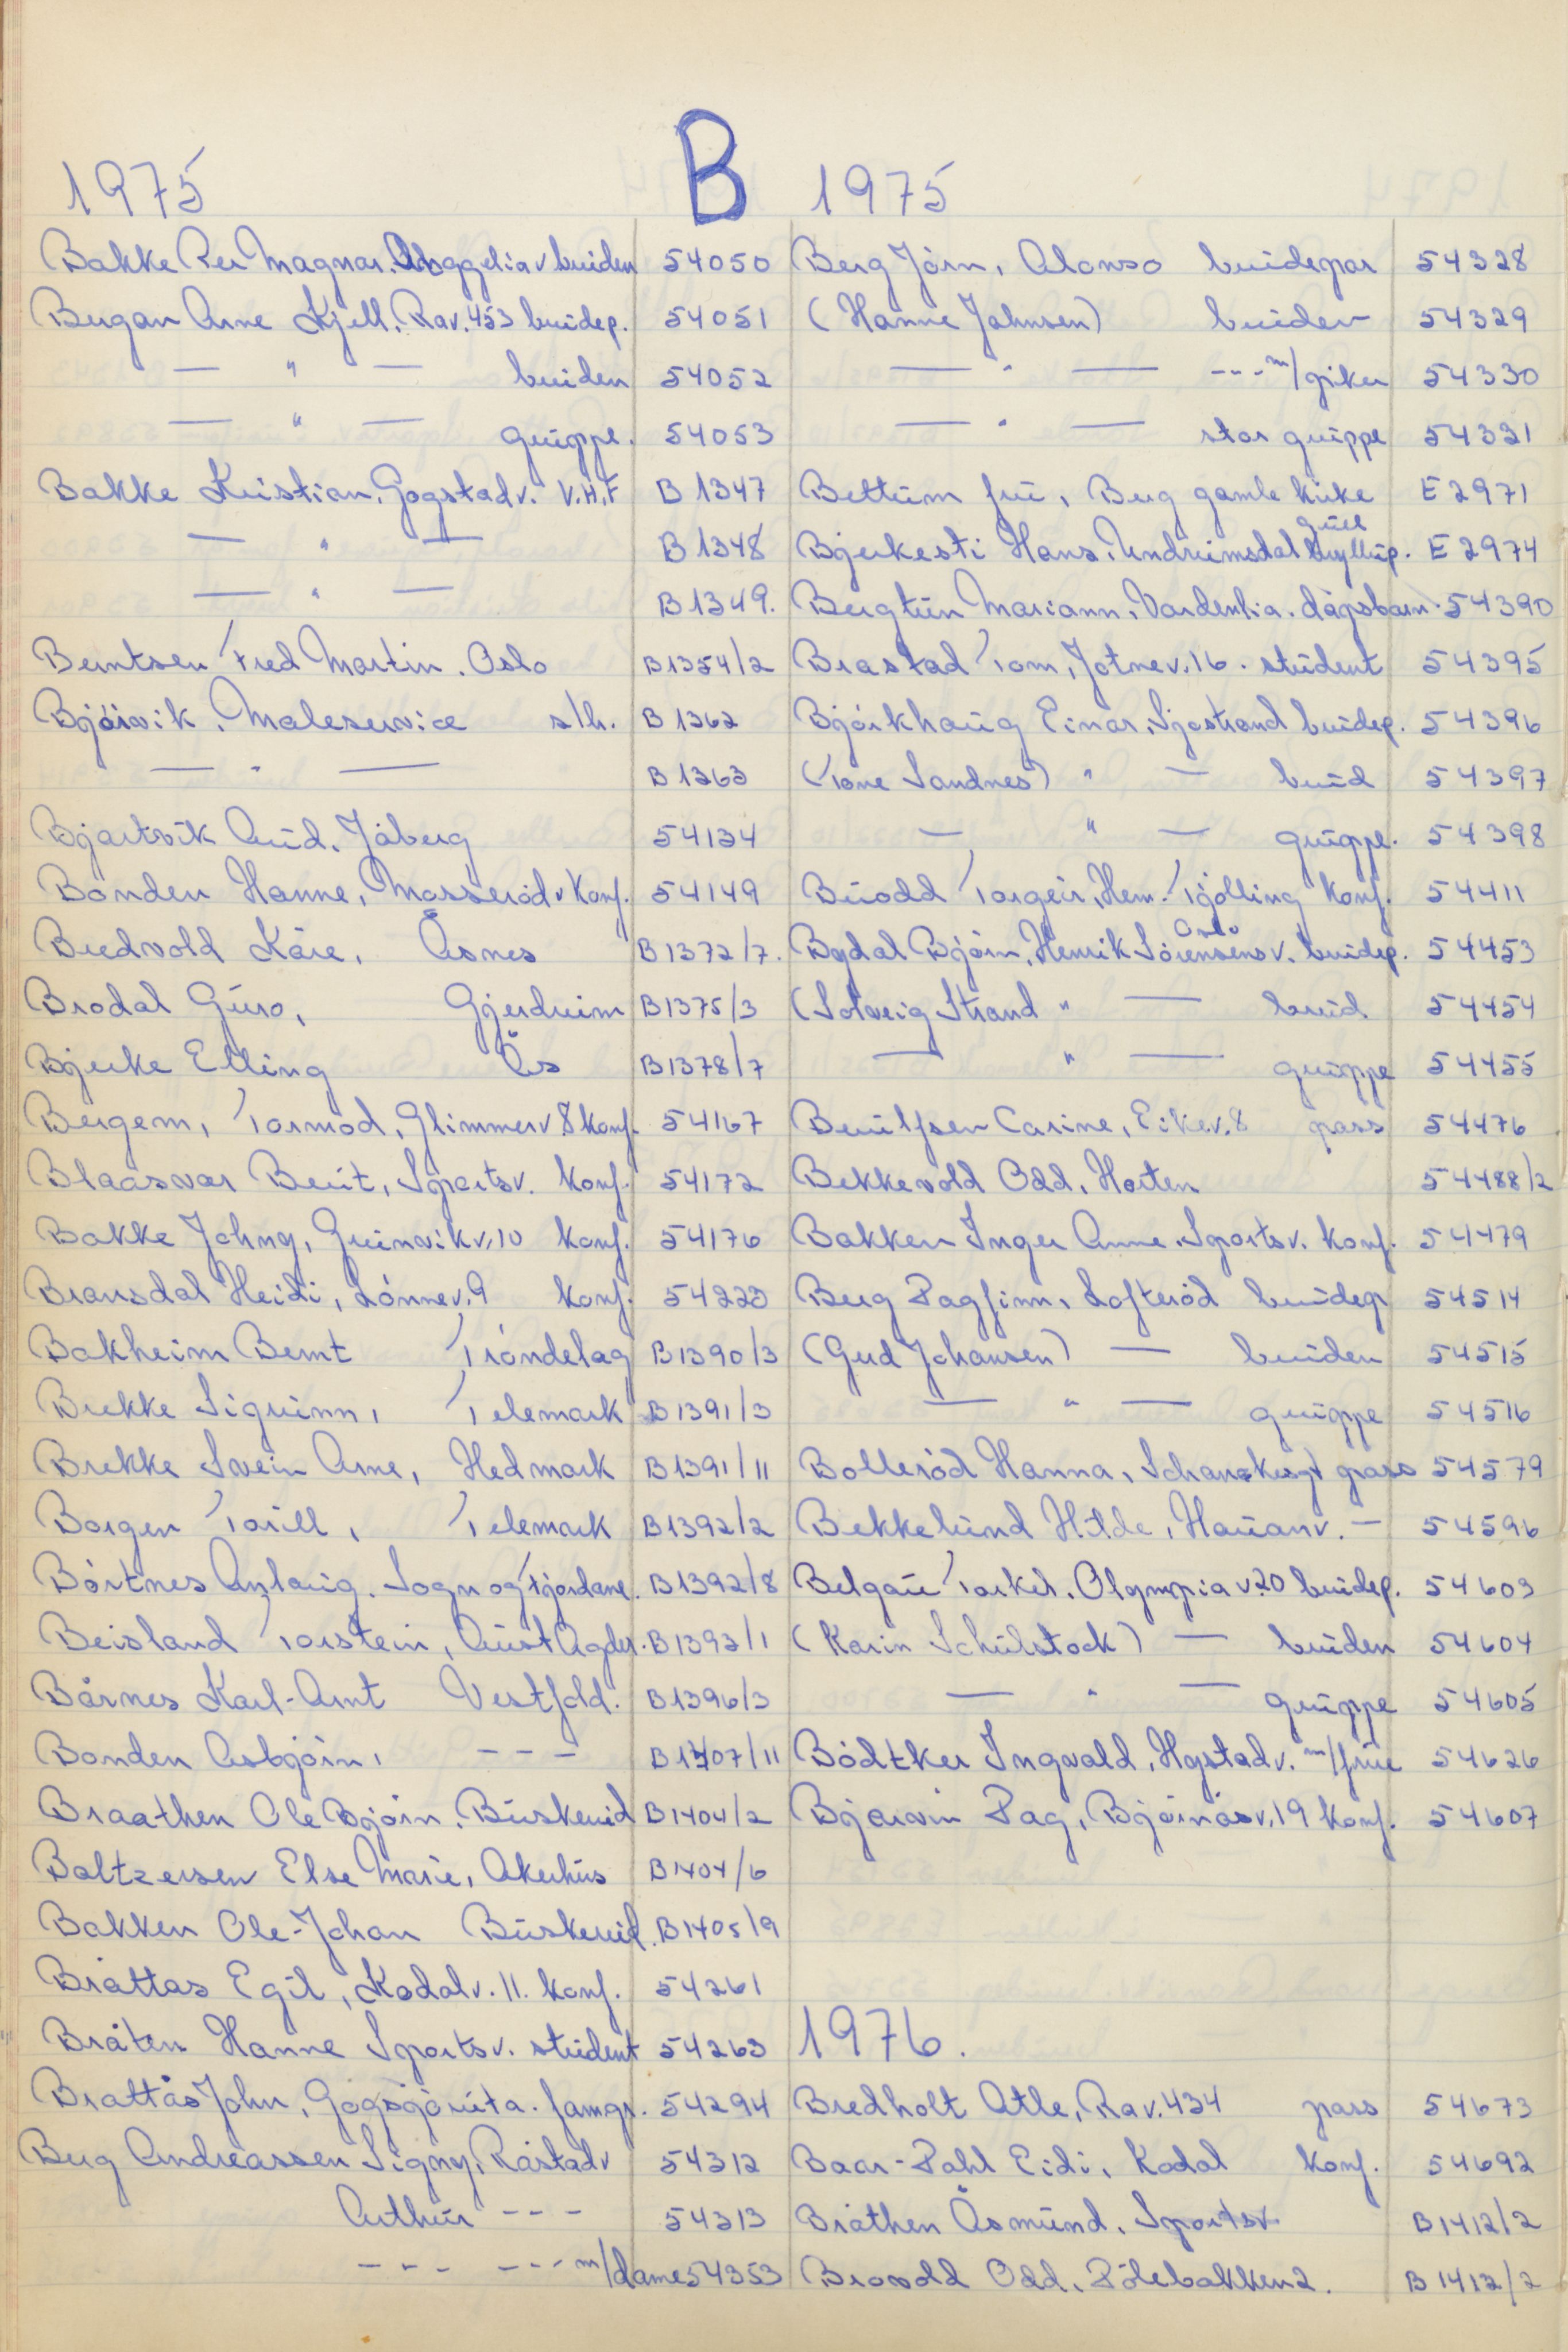 B
1975
Bakke Per Magnar. v bruden 54050
Bergan Arne Kjell. Rav. 453 brudep. 54051
— " — bruden 54052
— " — gruppe. 54053
Bakke Kristian. Gogstadv. V.H.F B 1347
— " — B 1348
— " — B 1349.
Berntsen Fred Martin. Oslo B1354/2
Bjørvik. Maleservice s/h. B 1362
— " — B 1363
Bjartvik Aud. Jåberg 54134
Bonden Hanne, Mosserød v konf. 54149
Bredvold Kåre, Åsnes B1372/7.
Brodal Guro, Gjerdrum B1375/3
Bjerke Elling Ås B1378/7
Bergem, Tormod, Glimmerv 8 konf. 54167
Blaasvær Berit, Sportsv. konf. 54172
Bakke Johny, Grinivikv. 10 konf. 54176
Bransdal Heidi, Lønnev. 9 konf. 54223
Bakheim Bernt Trøndelag B1390/3
Brekke Sigrunn, Telemark B1391/3
Brekke Svein Arne, Hedmark B1391/11
Borgen Torill, Telemark B1392/2
Børtnes Anlaug. Sogn og Fjordane. B1392/8
Beisland Torstein, Aust Agder. B1393/1
Bårnes Karl-Arnt Vestfold. B1396/3
Bonden Asbjørn, - - - B1407/11
Braathen Ole Bjørn. Buskerud B1404/2
Baltzersen Else Marie, Akerhus B1404/6
Bakken Ole-Johan Buskerud. B1405/9
Bråttas Egil, Kodalv. 11. konf. 54261
Bråten Hanne Sportsv. student 54263
Brattås John, famgr. 54294
Berg Andreassen Signy, Råstadv 54312
Arthur - - - 54313
- - - - - - m/dame 54353
1975
Berg Jørn, Alonso brudepar 54328
(Hanne Johnsen) bruden 54329
— " — - - - m/piker 54330
— " — stor gruppe 54331
Bettum fru, Berg gamle kirke E 2971
Bjerkesti Hans. Undrumsdal gull bryllup. E 2974
Bergtun Mariann, Vardenlia. dåpsbarn. 54390
Brastad Tom, Jotnev. 16. student 54395
Bjørkhaug Einar, Sjøstrand brudep. 54396
(Tone Sandnes) " — brud 54397
— " — gruppe. 54398
Buodd Torgeir, Hem. Tjølling konf. 54411
Bydal Bjørn, Henrik Sørensens v. Oslo brudep. 54453
(Solveig Strand " — brud. 54454
— " — gruppe 54455
Carine, Eikev. 8 pass 54476
Bekkevold Odd, Horten 54488/2
Bakken Inger Anne. Sportsv. konf. 54479
Berg Dagfinn, Lofterød brudep 54514
(Gerd Johansen) — bruden 54515
— " — gruppe 54516
Bollerød Hanna, pass 54579
Bekkelund Hilde, Hauanv. — 54596
Belgau Torkel. Olympia v 20 brudep. 54603
(Karin Schulstock) — bruden 54604
— " — gruppe 54605
Bødtker Ingvald, Hystadv. m/frue 54626
Bjarvin Dag, Bjørnåsv. 19 konf. 54607
1976.
Bredholt Atle, Rav. 434 pass 54673
Baar-Dahl Eidi, Kodal konf. 54692
Bråthen Åsmund. Sportsv. B1412/2
Brovold Odd. Dølebakken 2. B1412/2